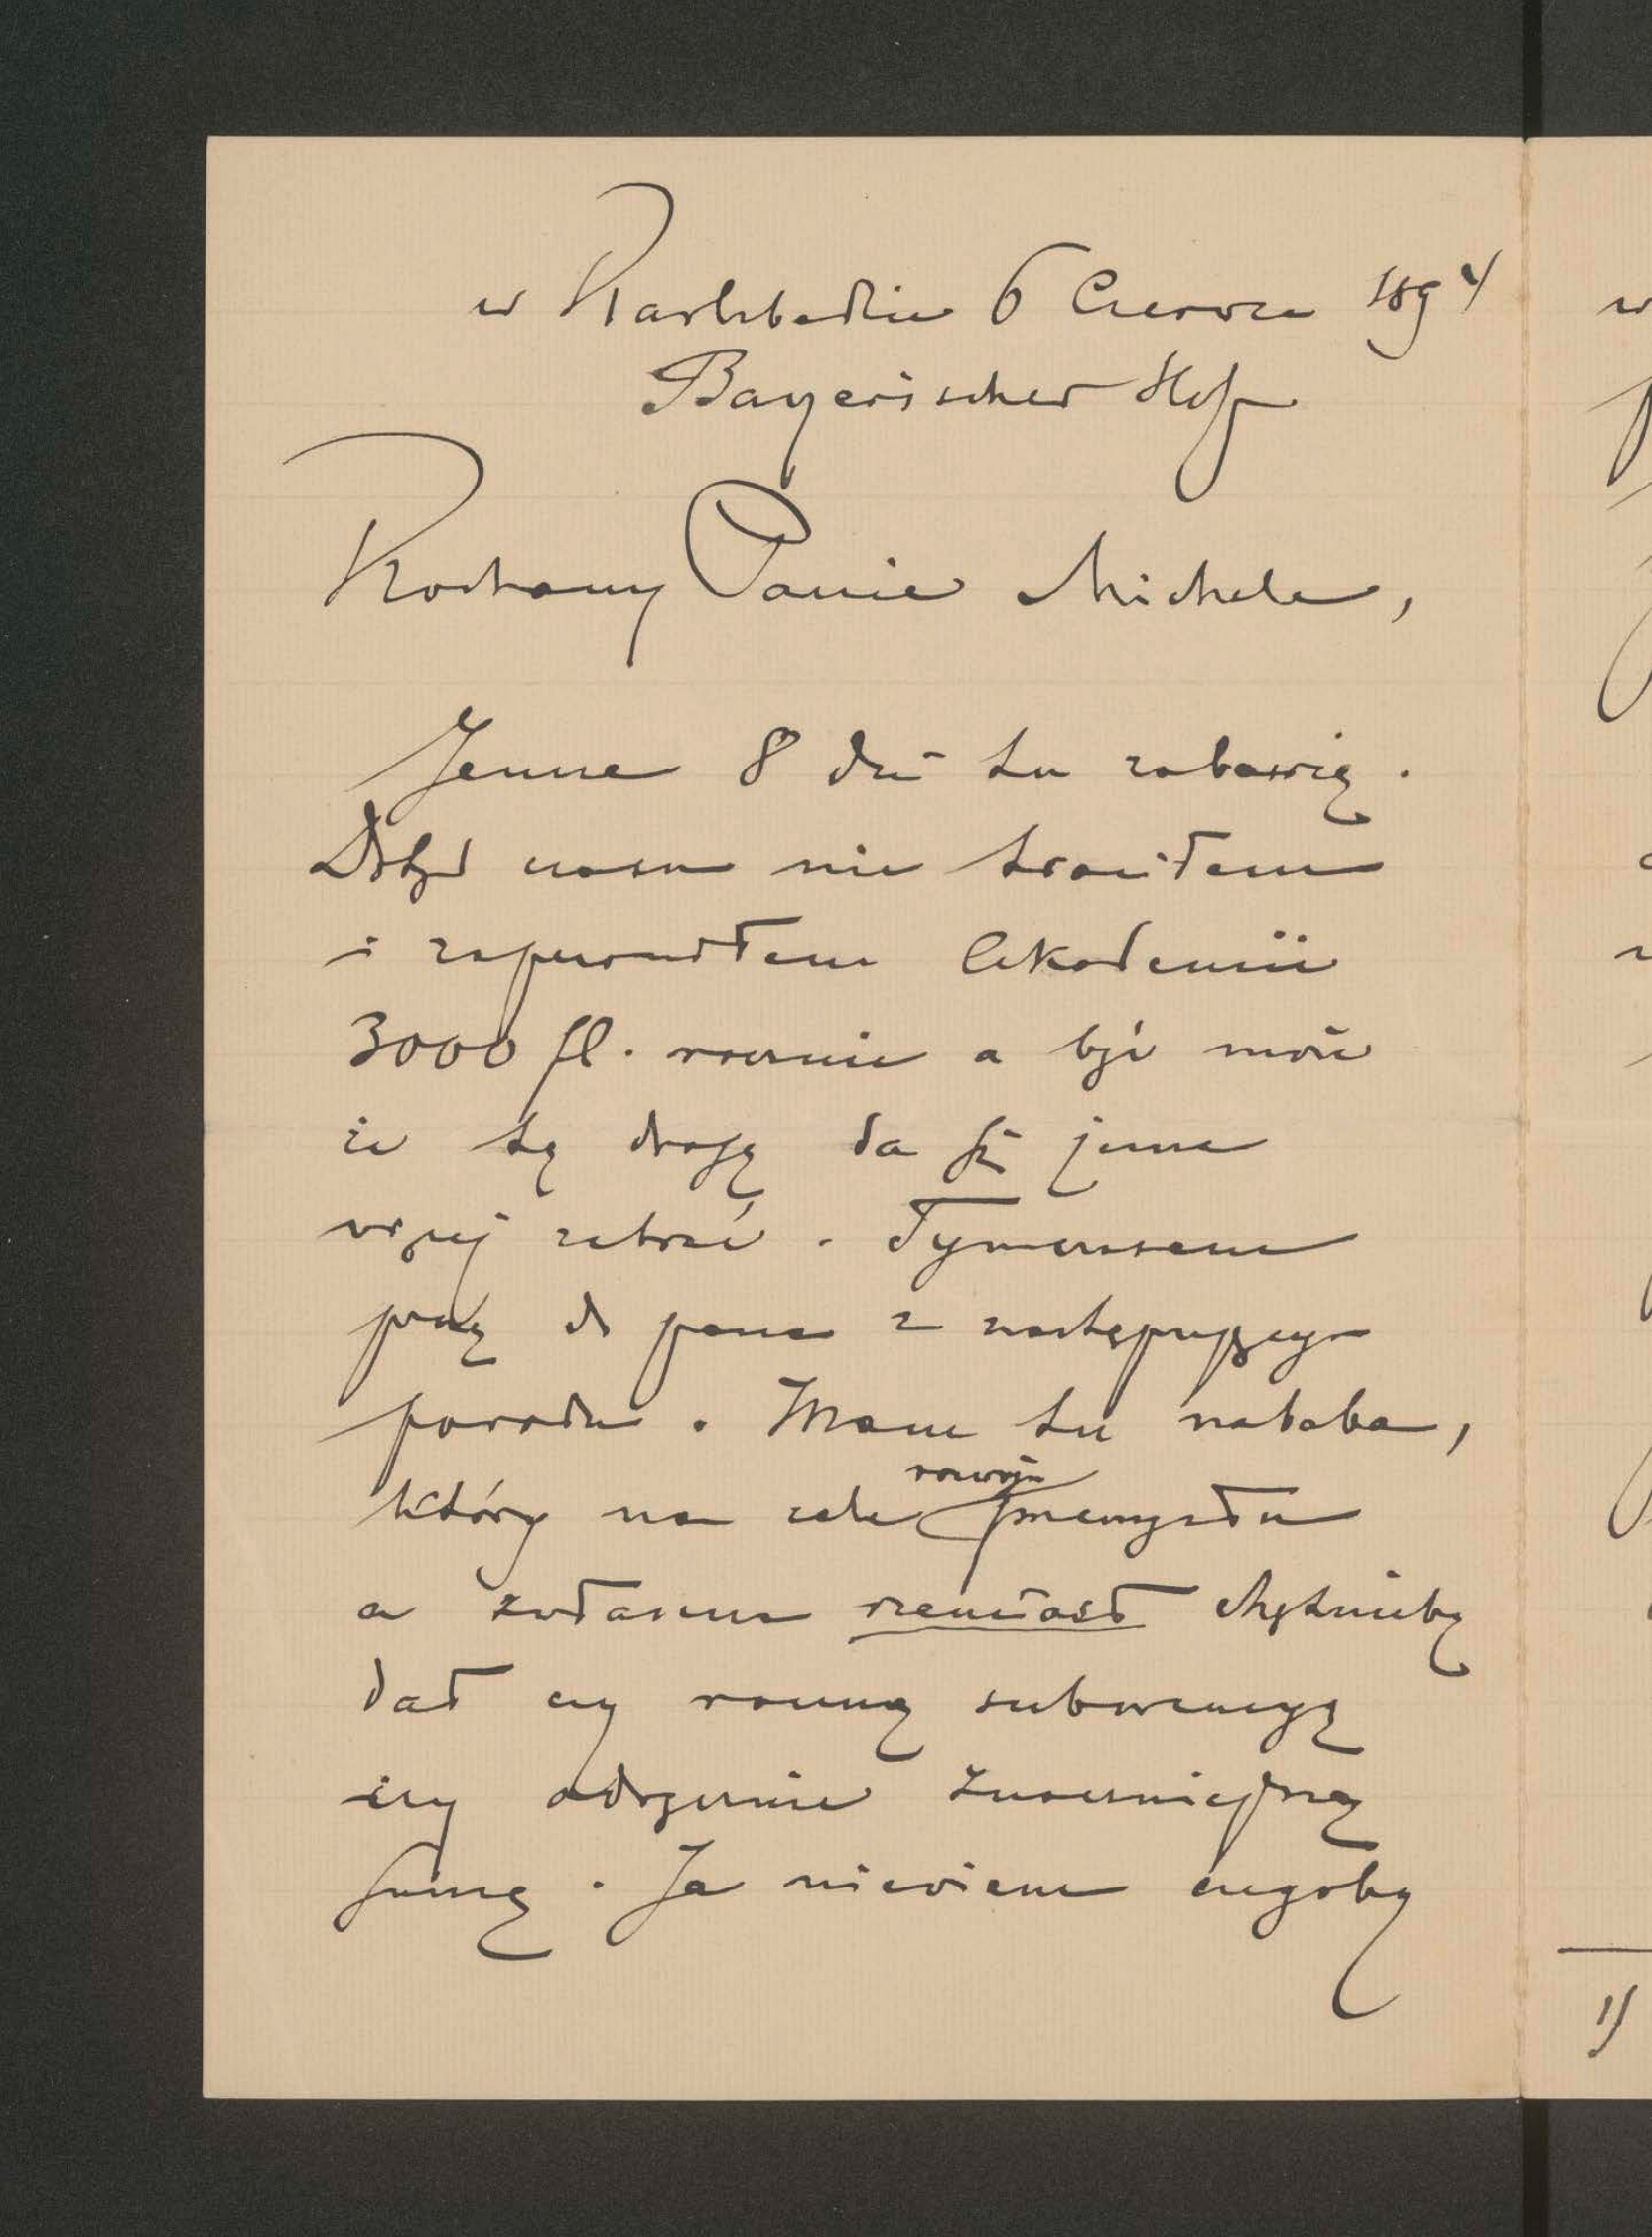 w Karlsbadzie 6 Czerwca 1894
Bayerischer Hof
Kochany Panie Michale,
Jeszcze 8 dni tu zabawię.
Dotąd czasu nie traciłem
i zapewniłem Akademii
3000 fl. rocznie a być może
że tą drogą da się jeszcze
więcej zebrać. Tymczasem
piszę do pana z następującego
powodu. Mam tu nababa,
który na cele rozwoju przemysłu
a zwłaszcza rzemiosł chętnieby
dał czy roczną subwencyą
czy odrazu znaczniejszą
sumę. Ja niewiem czegoby
w
1)